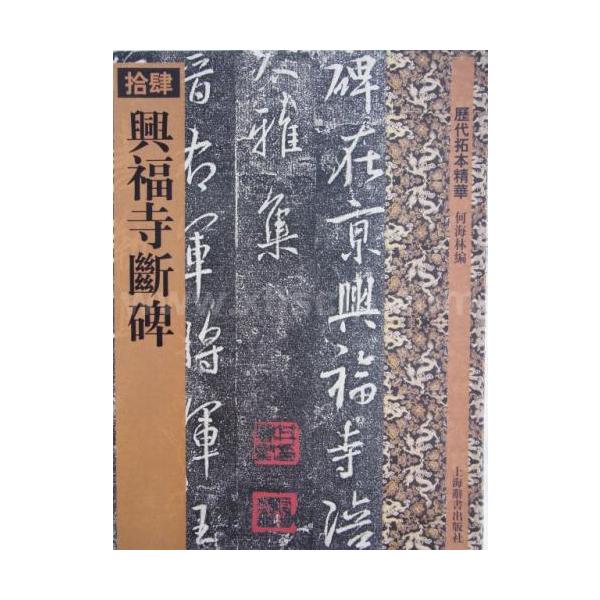 歷代拓本精華
何海林編
上海辭書出版社
碑在京興福寺陪
大雅集
晉右軍將軍王
拾肆
興福寺斷碑